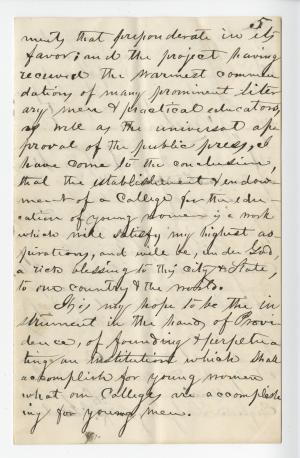 5
ments that preponderate in its
favor; and the project having
received the warmest commen
dations of many prominent liter
ary men & practical educators,
as well as the universal ap
proval of the public press, I
have come to the conclusion,
that the establishment & endow
ment of a College for the edu-
cation of young women is a work
which will satisfy my highest as
pirations, and will be, under God,
a rich blessing to this city & State,
to our country & the world.
It is my hope to be the in
strument in the hands of Provi
dence, of founding & perpetu
ating an Institution which shall
accomplish for young women
what our Colleges are accomplish
ing for young men.